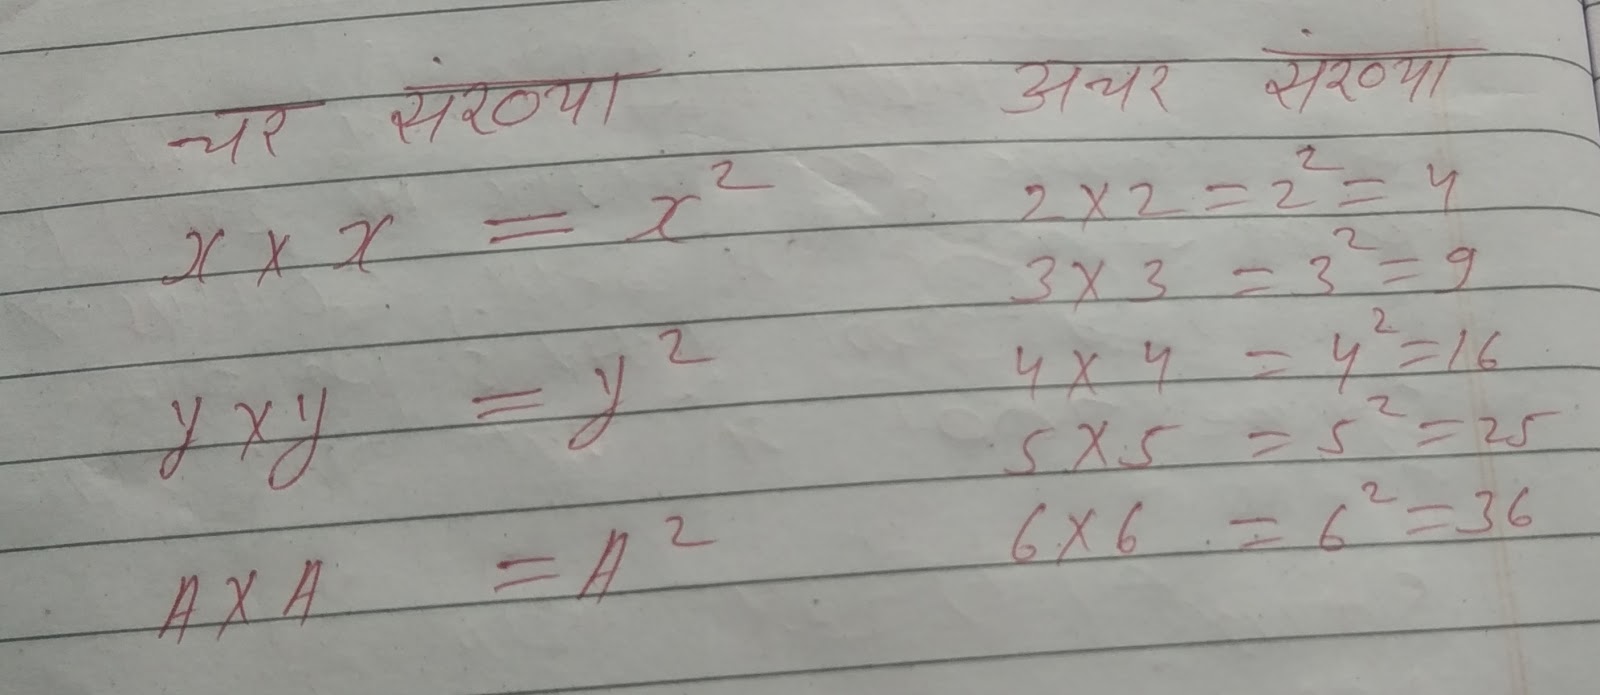 चर संख्या
x × x = x²
y × y = y²
A × A = A²
अचर संख्या
2 × 2 = 2² = 4
3 × 3 = 3² = 9
4 × 4 = 4² = 16
5 × 5 = 5² = 25
6 × 6 = 6² = 36